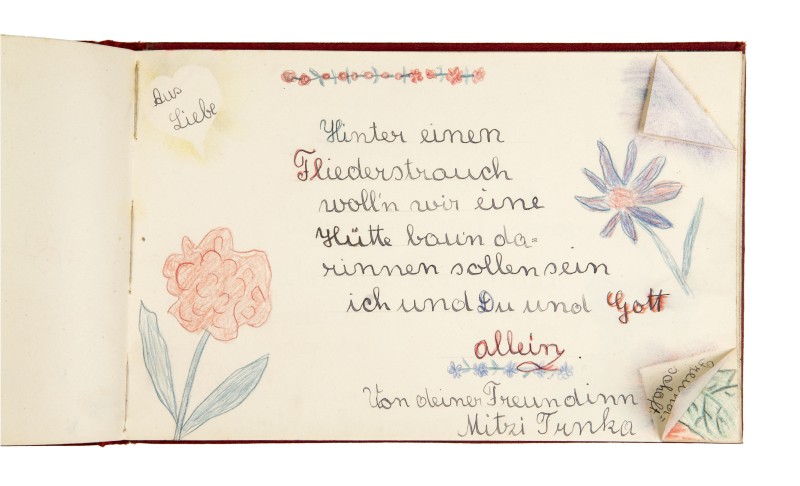 Aus
Liebe
Hinter einen
Fliederstrauch
woll'n wir eine
Hütte bau'n da=
rinnen sollen sein
ich und Du und Gott
allein.
Von deiner Freundinn
Mitzi Trnka